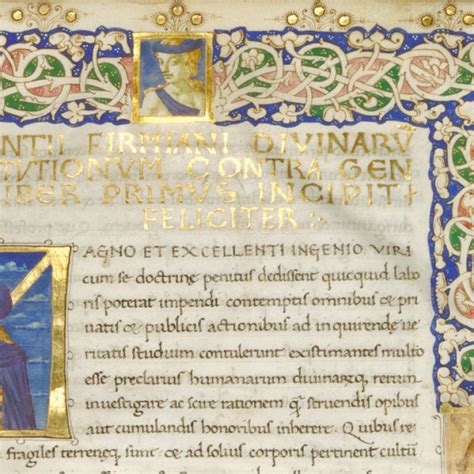 NTII FIRMIANI DIVINARV̅
TVTIONVM CONTRA GEN
IBER PRIMVS INCIPIT
FELICITER
AGNO ET EXCELLENTI INGENIO VIRI
cum se doctrine penitus dedissent quicquid labo
ris poterat impendi contemptis omnibus ce pri
uatis ce publicis actionibus ad inquirende ue
ritatis studium contulerunt existimantes multo
esse preclarius humanarum diuinarꝝ rerum
inuestigare ac scire rationem ꝗ seruendis opibus
aut cumulandis honoribus inherere Quibus re
fragiles terrenęq sunt ce ad solius corporis pertinent cultū